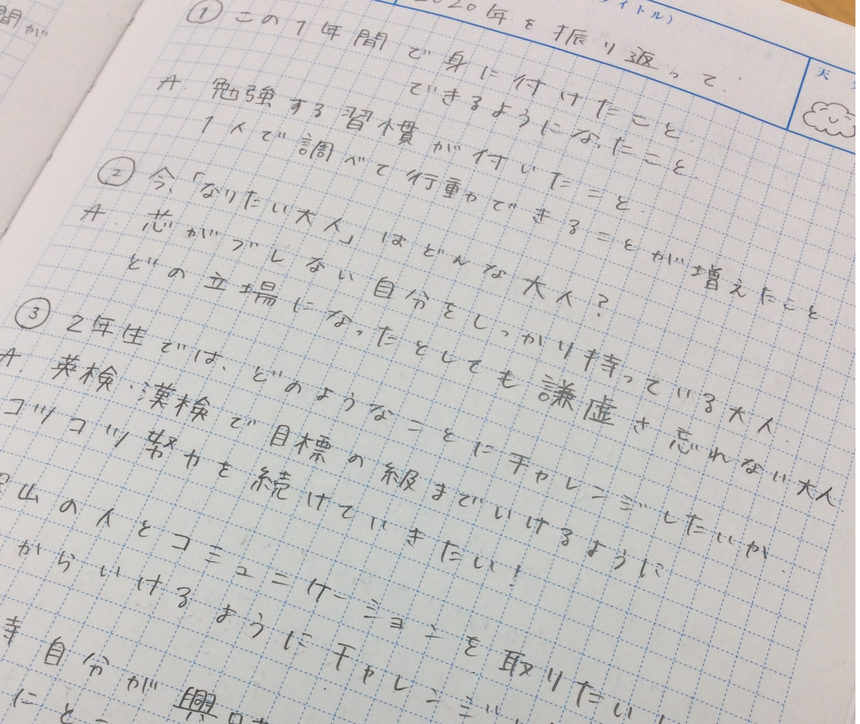 間が
イトル)
2020年を振り返って.
天
① この1年間で身に付けたこと
できるようになったこと.
A. 勉強する習慣が付いたこと.
1人で調べて行動ができることが増えたこと.
② 今、「なりたい大人」はどんな大人?
A. 芯がブレない自分をしっかり持っている大人.
どの立場になったとしても謙虚さ忘れない大人
③ 2年生では、どのようなことにチャレンジしたいか.
A. 英検・漢検で目標の級までいけるように
コツコツ努力を続けていきたい!
山の人とコミュニケーションを取りたい!
からいけるようにチャレンジ
自分が興味
にと